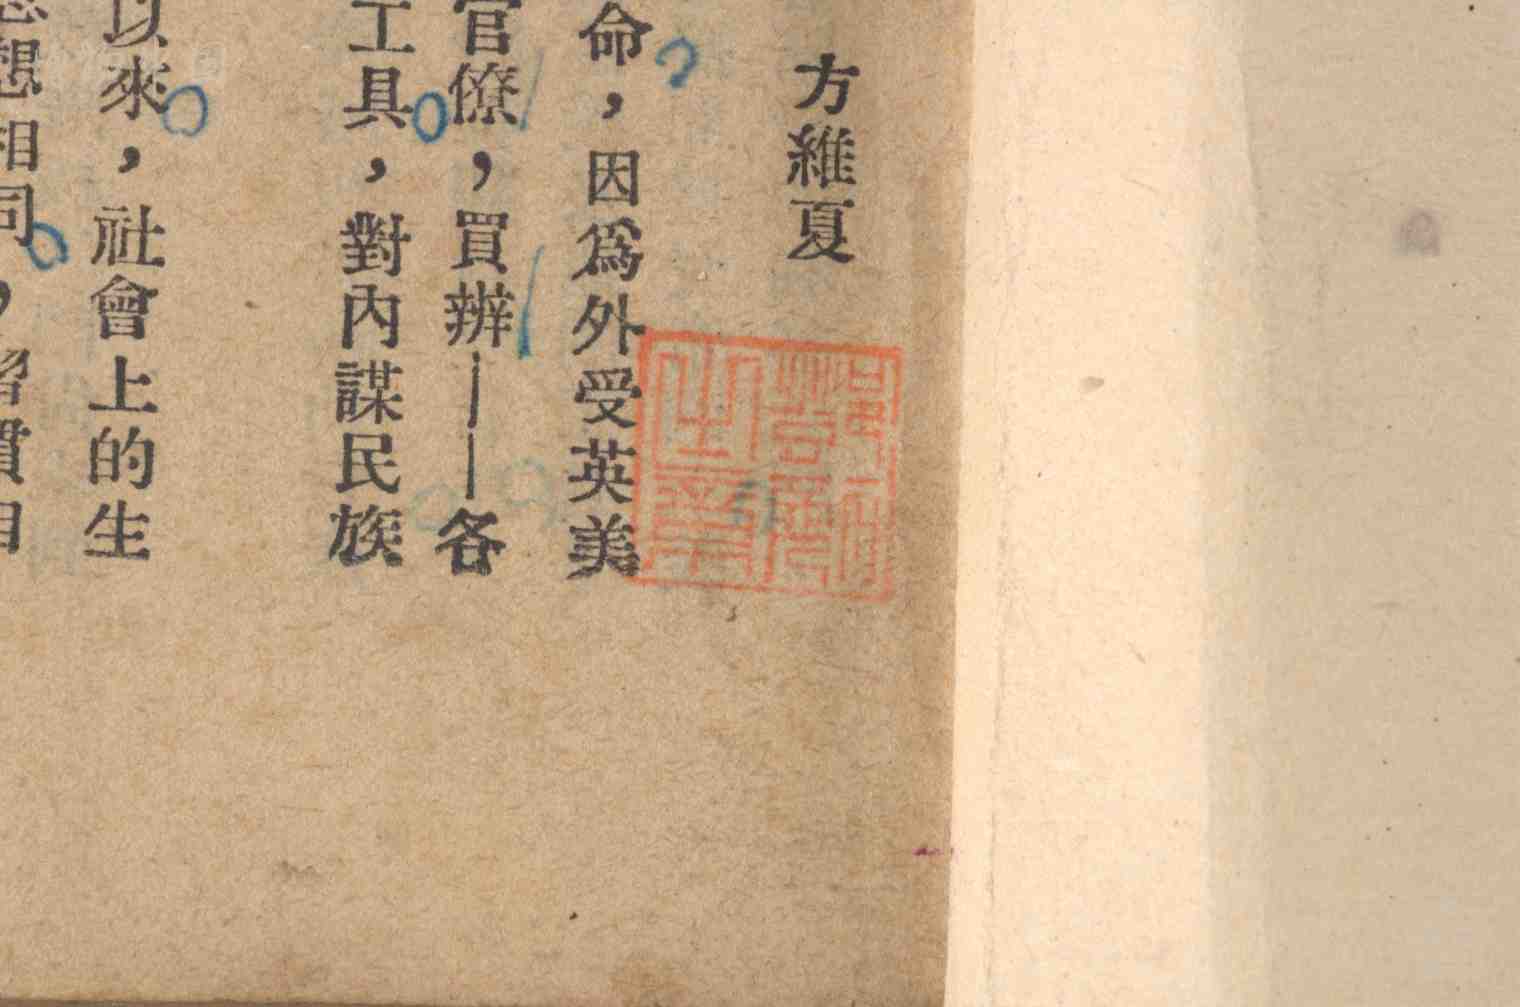 方維夏
命，因爲外受英美
官僚，買辦——各
工具，對內謀民族
以來，社會上的生
思想相同，習慣相
之章